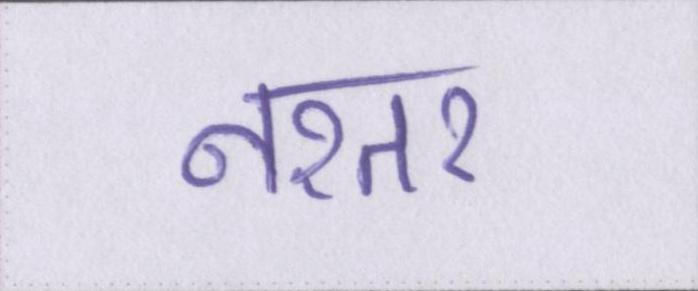 नश्तर